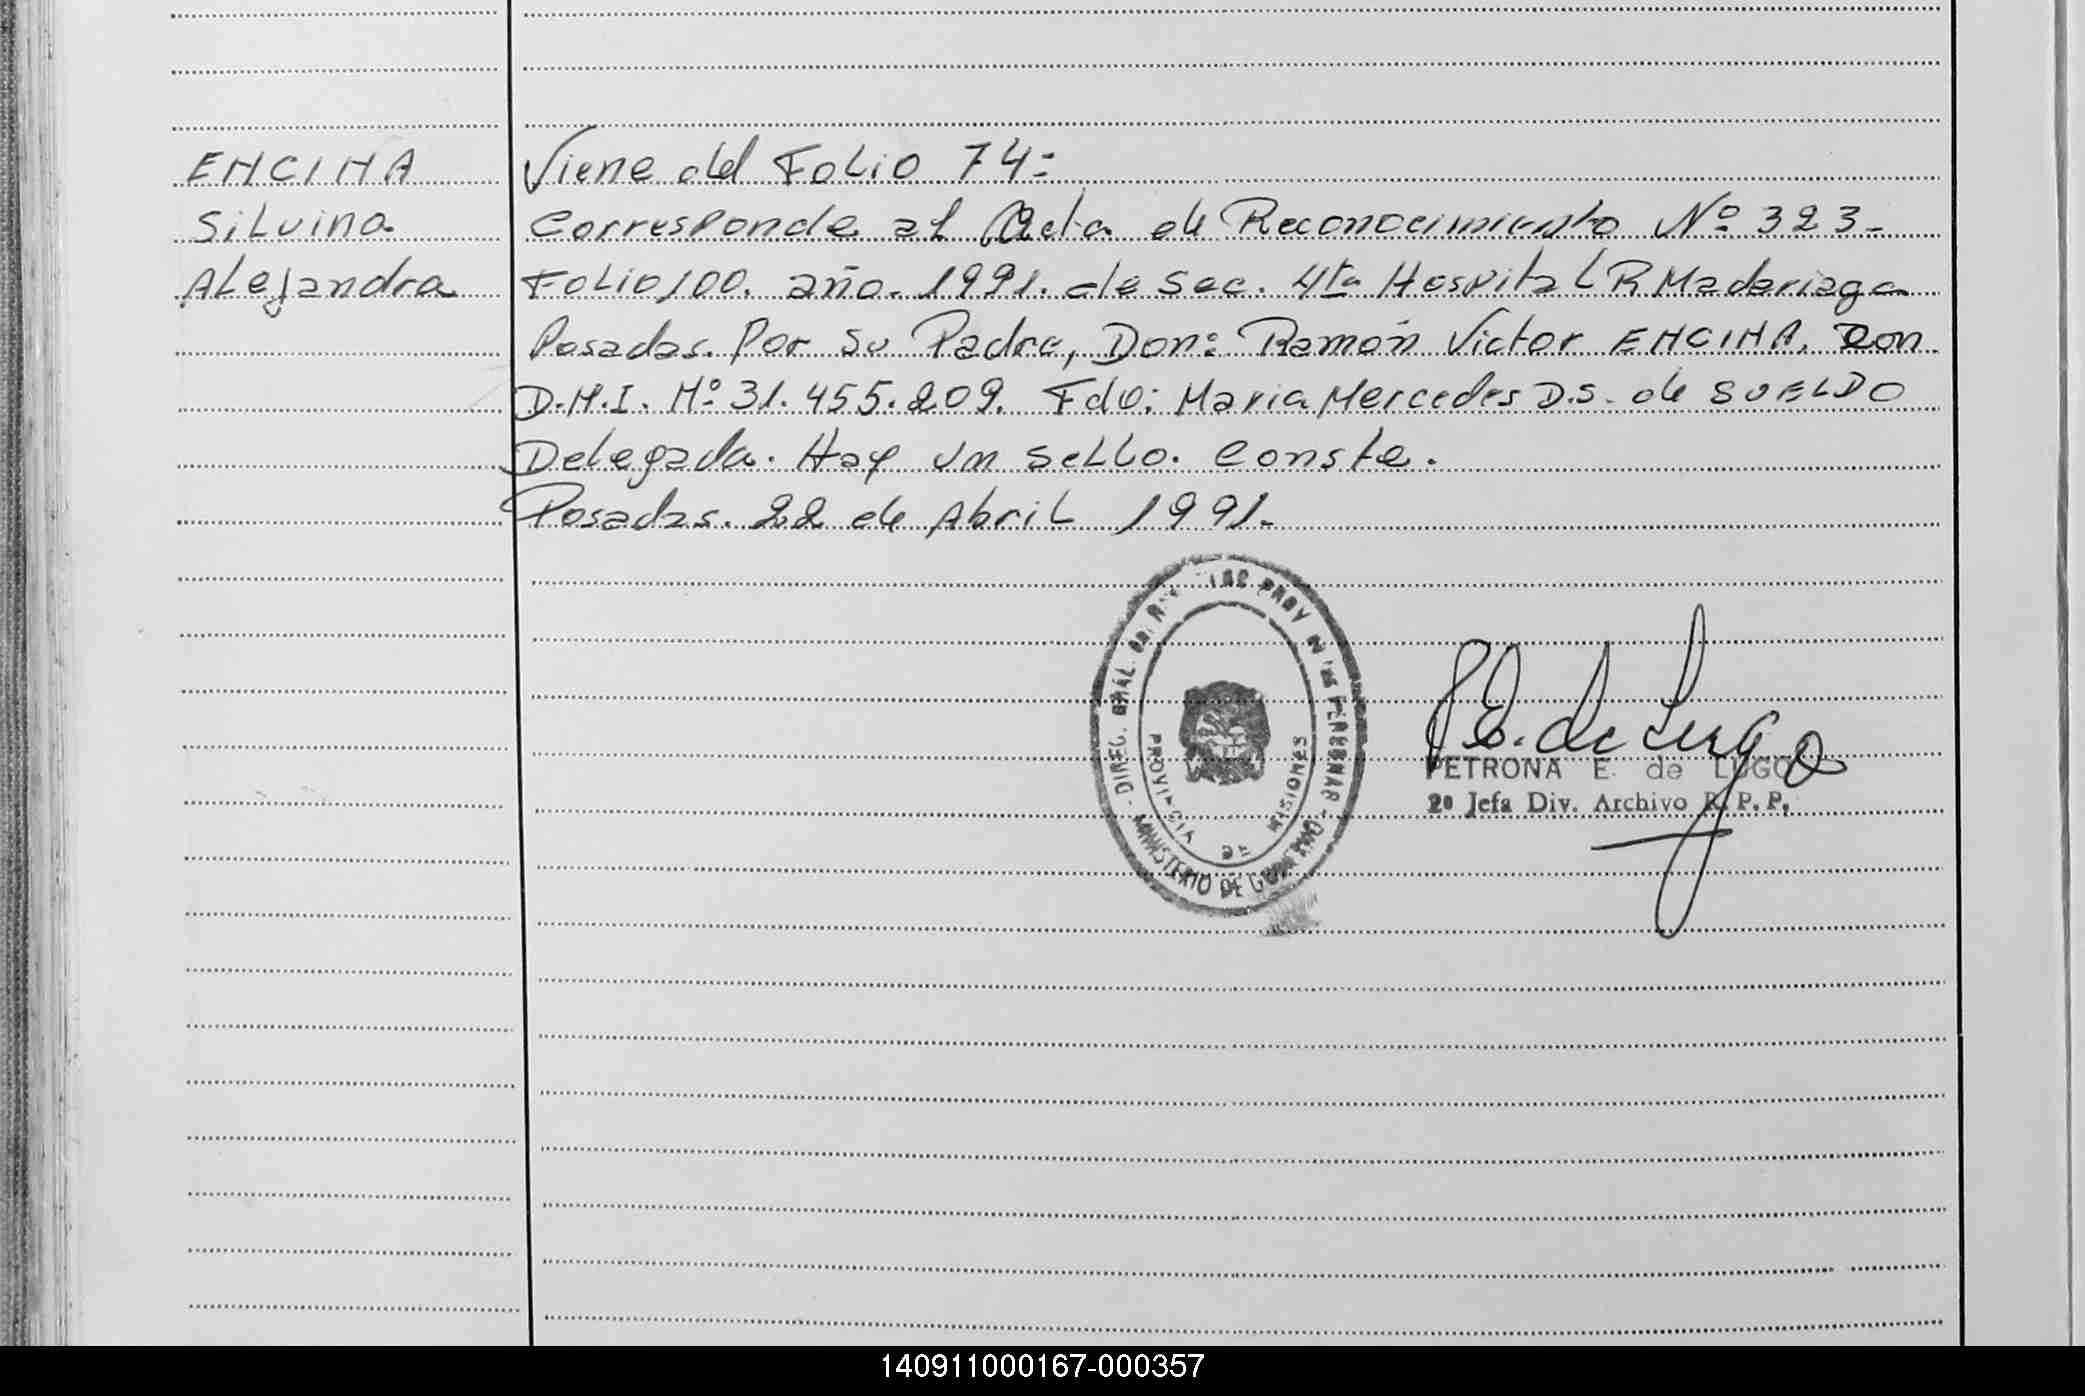 ENCINA
Silvina
Alejandra
Viene del Folio 74=
Corresponde al Acta de Reconocimiento Nº 323-
Folio 100. año. 1991. de Sec. 4ta Hospital R Madariaga
Posadas. Por su Padre, Don: Ramón Victor ENCINA. Con
D.N.I. Nº 31.455.209. Fdo: Maria Mercedes D.S. de SUELDO
Delegada. Hay un sello. Conste.
Posadas. 22 de Abril 1991.
DIREC. GRAL. PROV. DE LAS PERSONAS - MINISTERIO DE
PROVINCIA DE MISIONES
P E. de Lugo
PETRONA E. de LUGO
2º Jefa Div. Archivo R. P. P.
140911000167-000357